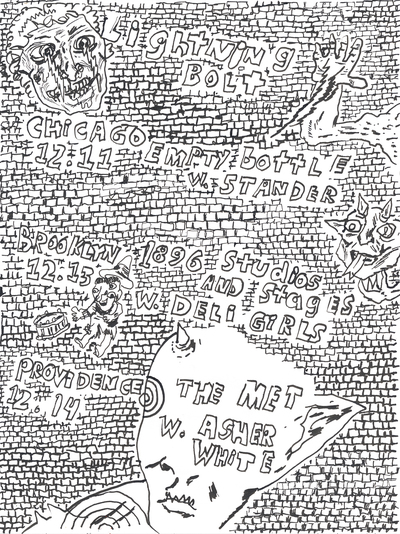 LiGhTNiNG
BOLt
CHiCAGO
12:11 EMPTY bOttLE
W. STANDER
BROOKLYN
12:13 1896 StUdiOS
AND StAGES
W. DELi GiRLS
PROViDENCE
12.14. THE MET
W. ASHER
WHiTE